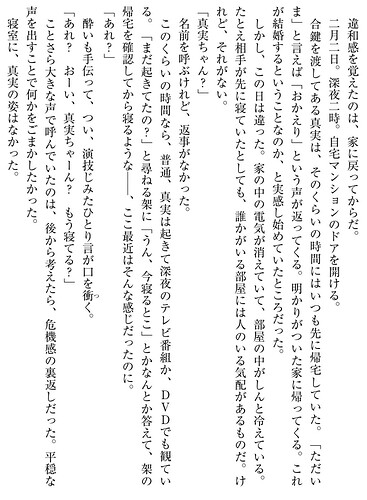 違和感を覚えたのは、家に戻ってからだ。
二月二日。深夜二時。自宅マンションのドアを開ける。
合鍵を渡してある真実は、そのくらいの時間にはいつも先に帰宅していた。「ただい
ま」と言えば「おかえり」という声が返ってくる。明かりがついた家に帰ってくる。これ
が結婚するということなのか、と実感し始めていたところだった。
しかし、この日は違った。家の中の電気が消えていて、部屋の中がしんと冷えている。
たとえ相手が先に寝ていたとしても、誰かがいる部屋には人のいる気配があるものだ。け
れど、それがない。
「真実ちゃん？」
名前を呼ぶけれど、返事がなかった。
このくらいの時間なら、普通、真実は起きて深夜のテレビ番組か、DVDでも観てい
る。「まだ起きてたの？」と尋ねる架に「うん、今寝るとこ」とかなんとか答えて、架の
帰宅を確認してから寝るような――、ここ最近はそんな感じだったのに。
「あれ？」
酔いも手伝って、つい、演技じみたひとり言が口を衝く。
つ
「あれ？　おーい、真実ちゃーん？　もう寝てる？」
ことさら大きな声で呼んでいたのは、後から考えたら、危機感の裏返しだった。平穏な
声を出すことで何かをごまかしたかった。
寝室に、真実の姿はなかった。